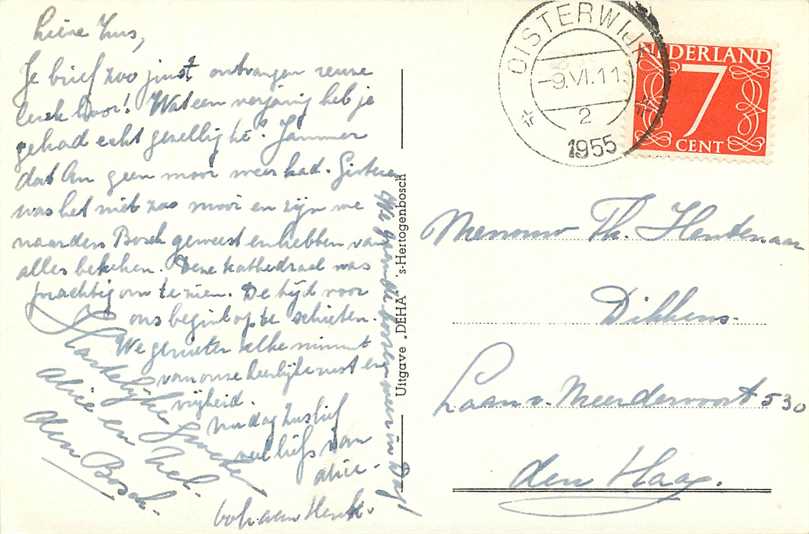 Lieve Zus,
Je brief zoo juist ontvangen reuze
leuk hoor! Wat een verjaring heb je
gehad echt gezellig hè. Jammer
dat An geen mooi weer had. Gisteren
was het niet zoo mooi en zijn we
naar den Bosch geweest en hebben van
alles bekeken. Deze kathedraal was
prachtig om te zien. De tijd voor
ons begint op te schieten.
We genieten elke minuut
van onze heerlijke rust en
vrijheid.
Nu dag Zus lief
veel liefs van
Alice.
ook aan Henk.
Hartelijke Groeten
Alice en Nel.
den Bosch.
We gaan de bossen weer in Dag!
Uitgave „DEHA" 's-Hertogenbosch
OISTERWIJK
-9.VI.11
2
1955
NEDERLAND
7
CENT
Mevrouw Th.
Dikkens.
Laan v. Meerdervoort 530
den Haag.